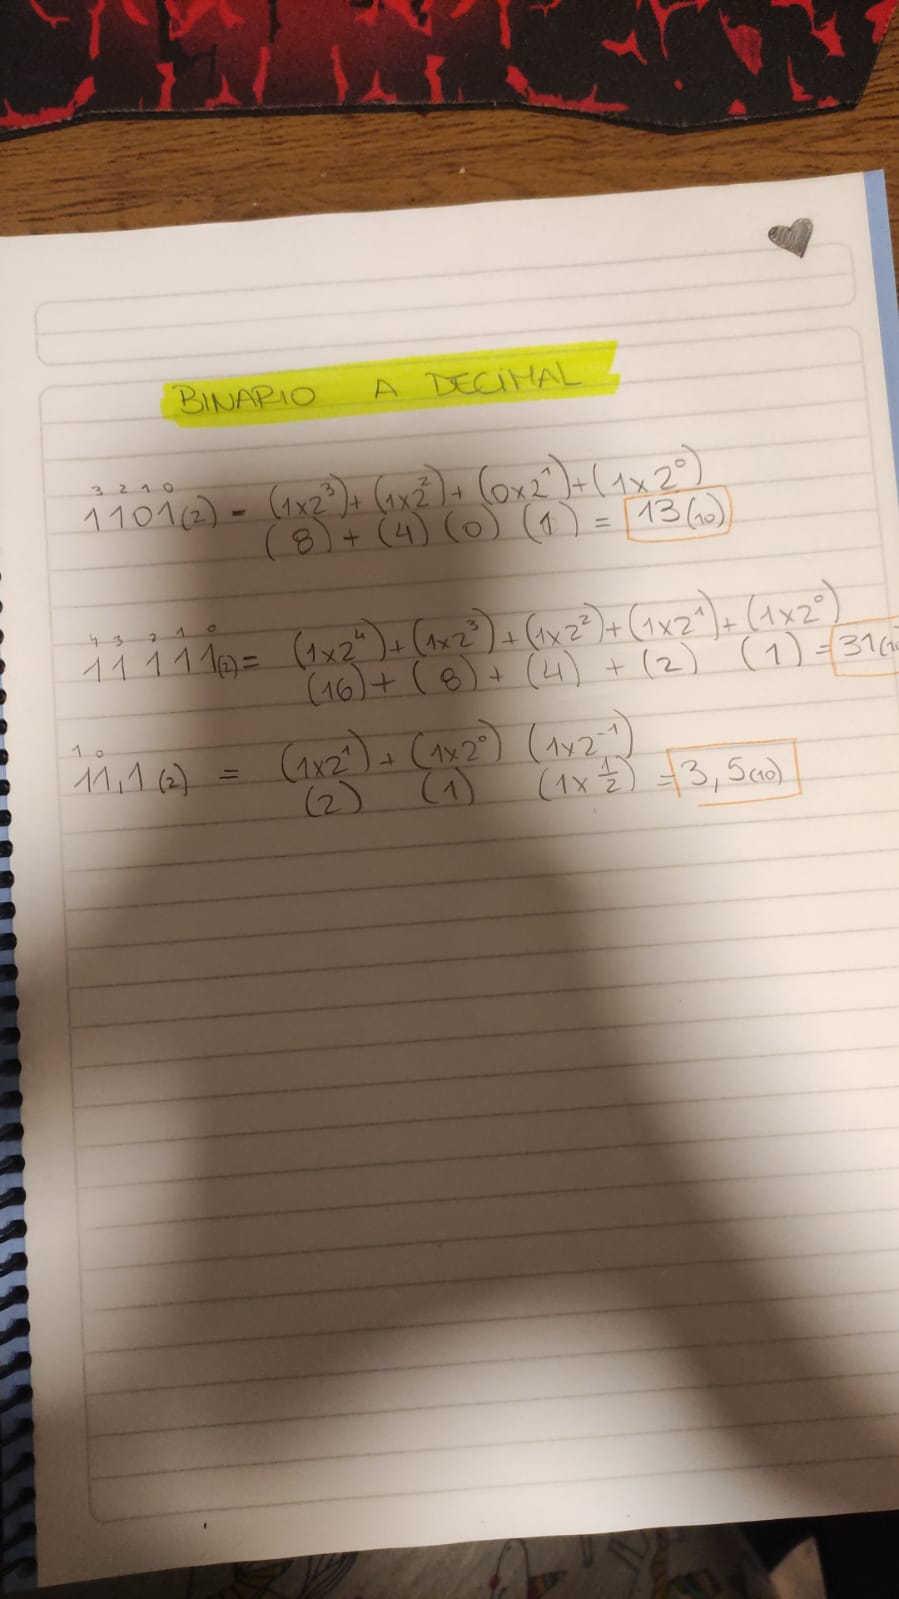 BINARIO A DECIMAL
3 2 1 0
1101(2) - (1x2³)+(1x2²)+(0x2¹)+(1x2⁰)
(8)+(4) (0) (1) = 13(10)
4 3 2 1 0
11 111(2)= (1x2⁴)+(1x2³)+(1x2²)+(1x2¹)+(1x2⁰)
(16)+(8)+(4) +(2) (1)=31(10
1 0
11,1(2) = (1x2¹)+(1x2⁰) (1x2⁻¹)
(2) (1) (1x 1/2) =3,5(10)